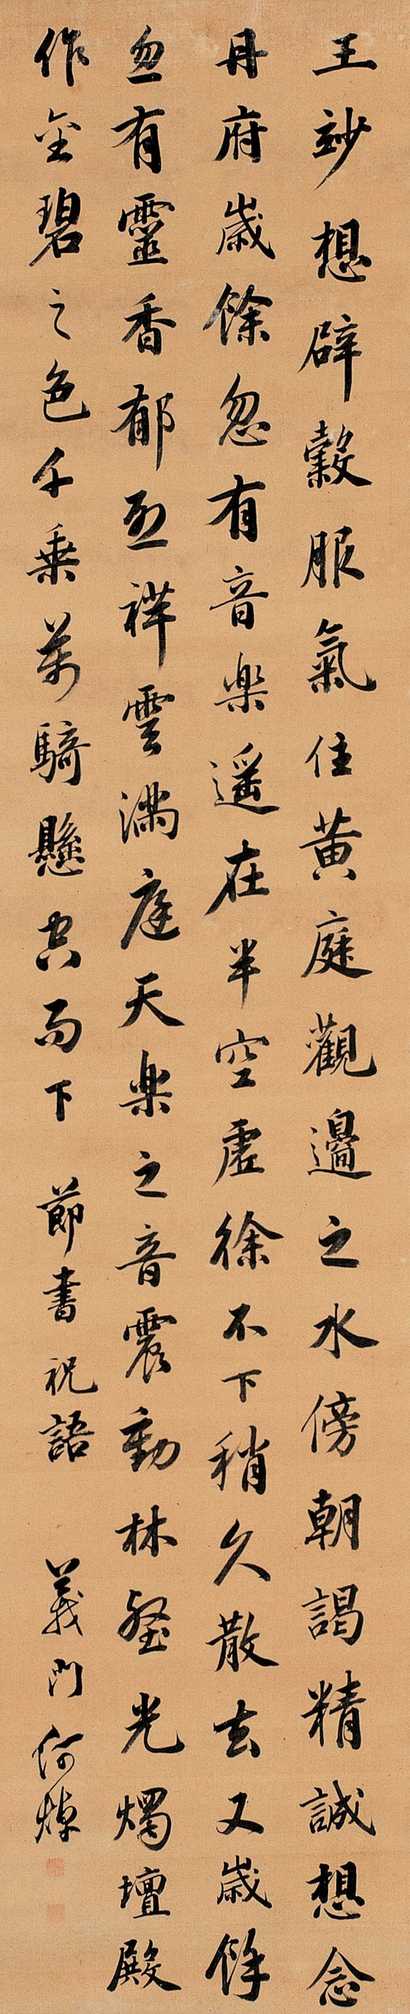 王妙想辟穀服氣住黄庭觀邊之水傍朝謁精誠想念
丹府歲餘忽有音樂遥在半空虚徐不下稍久散去又歲餘
忽有靈香郁烈祥雲滿庭天樂之音震動林壑光燭壇殿
作金碧之色千乘萬騎懸空而下 節書祝語 義門何焯